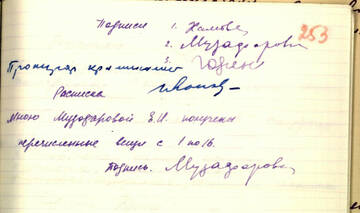 253
Подписи 1. Халова
2. Музафарова
Расписка
Мною Музафаровой Е.И. получены
перечисленные вещи с 1 по 16.
Подпись. Музафарова